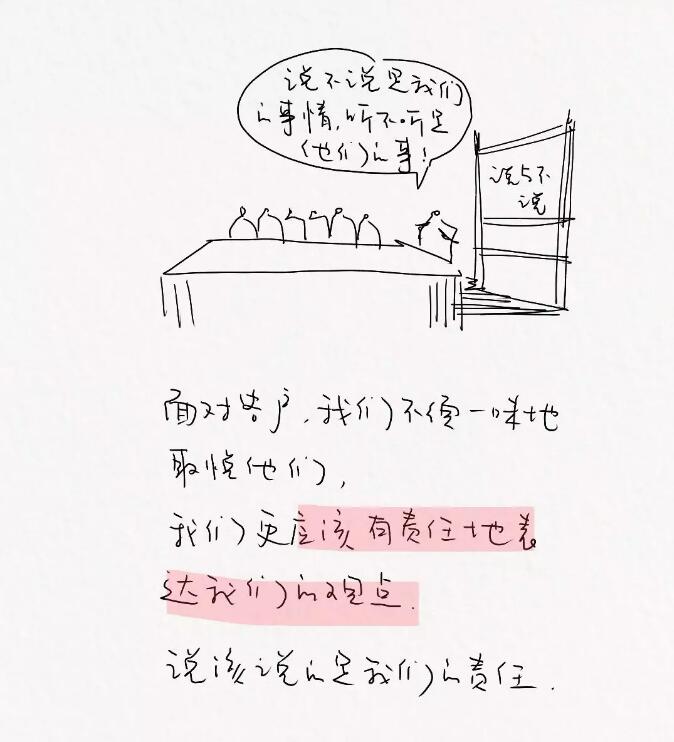 说不说是我们
的事情,听不听是
他们的事!
说与不
说
面对客户,我们不须一味地
取悦他们,
我们更应该有责任地表
达我们的观点.
说该说的是我们的责任.